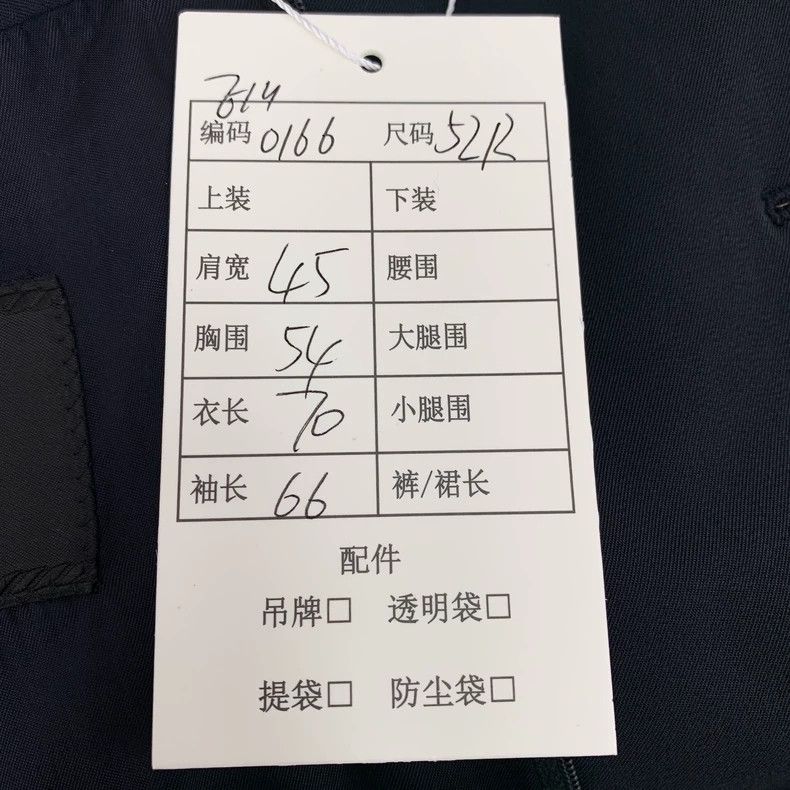 编码 0166 尺码 52R
上装 下装
肩宽 45 腰围
胸围 54 大腿围
衣长 70 小腿围
袖长 66 裤/裙长
配件
吊牌□ 透明袋□
提袋□ 防尘袋□